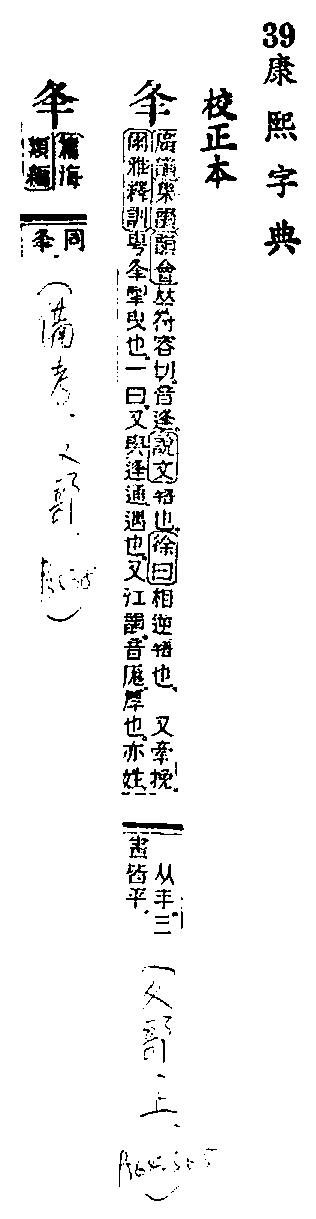 39
康熙字典
校正本
夆
廣韻集韻韻會𠀤符容切音逢說文啎也徐曰相逆啎也 又牽挽
爾雅釋訓甹夆掣曳也一曰又與逢通遇也又江韻音厖厚也亦姓
从丰三
畫皆平
(夂部·上
篇海
類編
同
夆
(備考·夂部